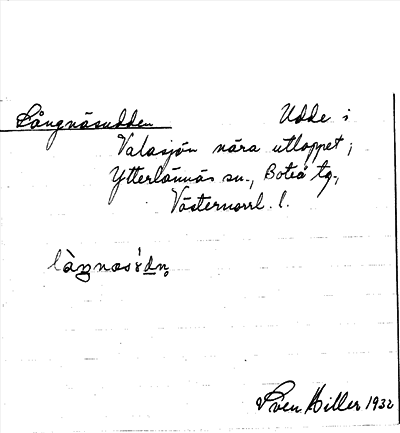 Långnäsudden Udde i
Valasjön nära utloppet,
Ytterlännäs sn., Boteå tg.,
Västernorrl. l.
Sven Hiller 1932